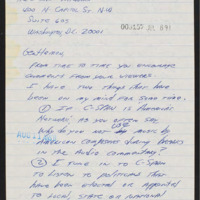 400 N Capitol St N.W.
Suite 650
Washington DC 20001
Gentlemen
From time to time you encourage
comments from your viewers.
I have two things that have
been on my mind for some time.
① C-SPAN is "America's
Network" as you often say
Why do you not use music by
American composers during breaks
in the audio commentary?
② I tune in to C-Span
to listen to politicians that
have been elected or appointed
to local, state or national